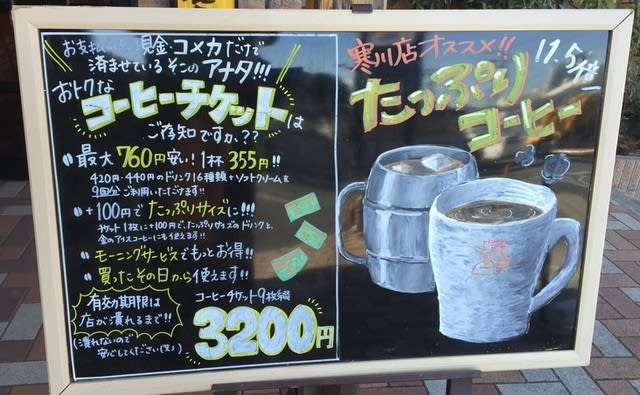 お支払いを現金・コメカだけで
済ませているそこのアナタ!!!
おトクな
コーヒーチケットは
ご存知ですか??
最大760円安い!1杯355円!!
420円・440円のドリンク16種類+ソフトクリームを
9回分ご利用いただけます!!
+100円でたっぷりサイズに!!!
チケット1枚に+100円で、たっぷりサイズのドリンクと、
金のアイスコーヒーにも使えます!!
モーニングサービスでもっとお得!!
買ったその日から使えます!!
有効期限は
店が潰れるまで!!
(潰れないので
安心してください(笑))
コーヒーチケット9枚綴
3200円
寒川店オススメ!!
たっぷり
コーヒー
1.5杯